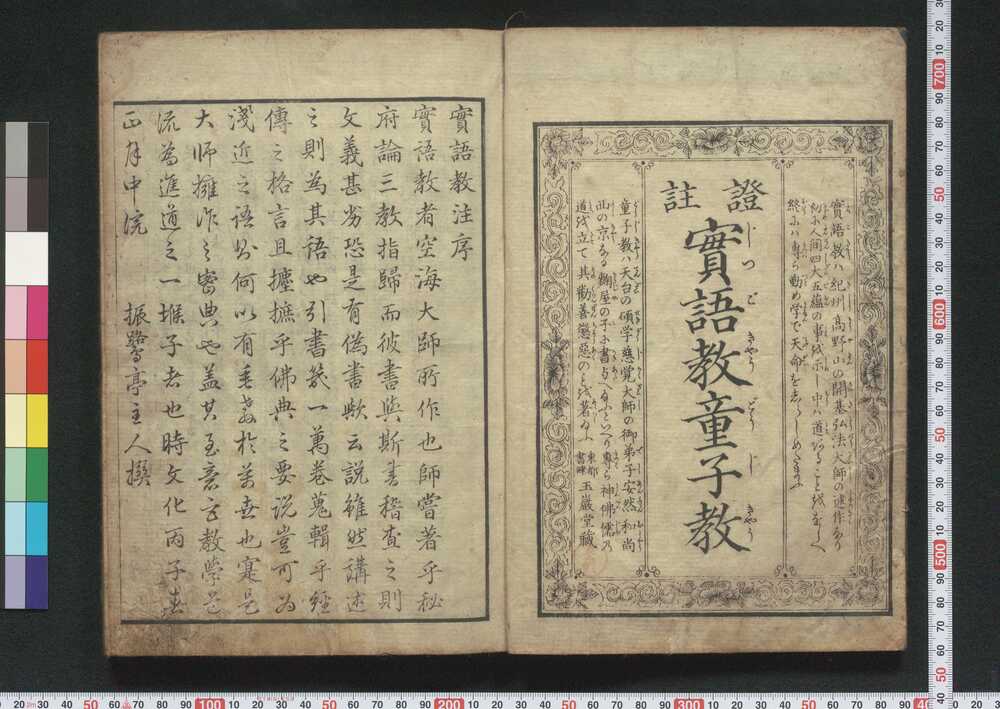 實語教ハ紀州高野山の開基弘法大師の述作なり
初に人間四大五蘊の事を示し中ハ道
終にハ専ら勤め学で天命を
證註
實語教童子教
じつごきやうどうじきやう
童子教ハ天台の碩学慈覚大師の御弟子安然和尚
山の京なる麹屋の子に書与へ給ふといへり専ら神佛儒の
道を立て其勸善懲惡の
東都書肆 玉巖堂藏
實語教注序
實語教者空海大師所作也師嘗著乎秘
府論三教指歸而彼書與斯書稽査之則
文義甚劣恐是有偽書歟云説雖然講述
之則為其語也引書裁一萬卷蒐輯乎經
傳之格言且攟摭乎佛典之要説豈可為
淺近之語則何以有垂教於萬世也寔是
大師擁作之密典也蓋其至意言教學之
流為進道之一梯子者也時文化丙子春
正月中浣 振鷺亭主人撰